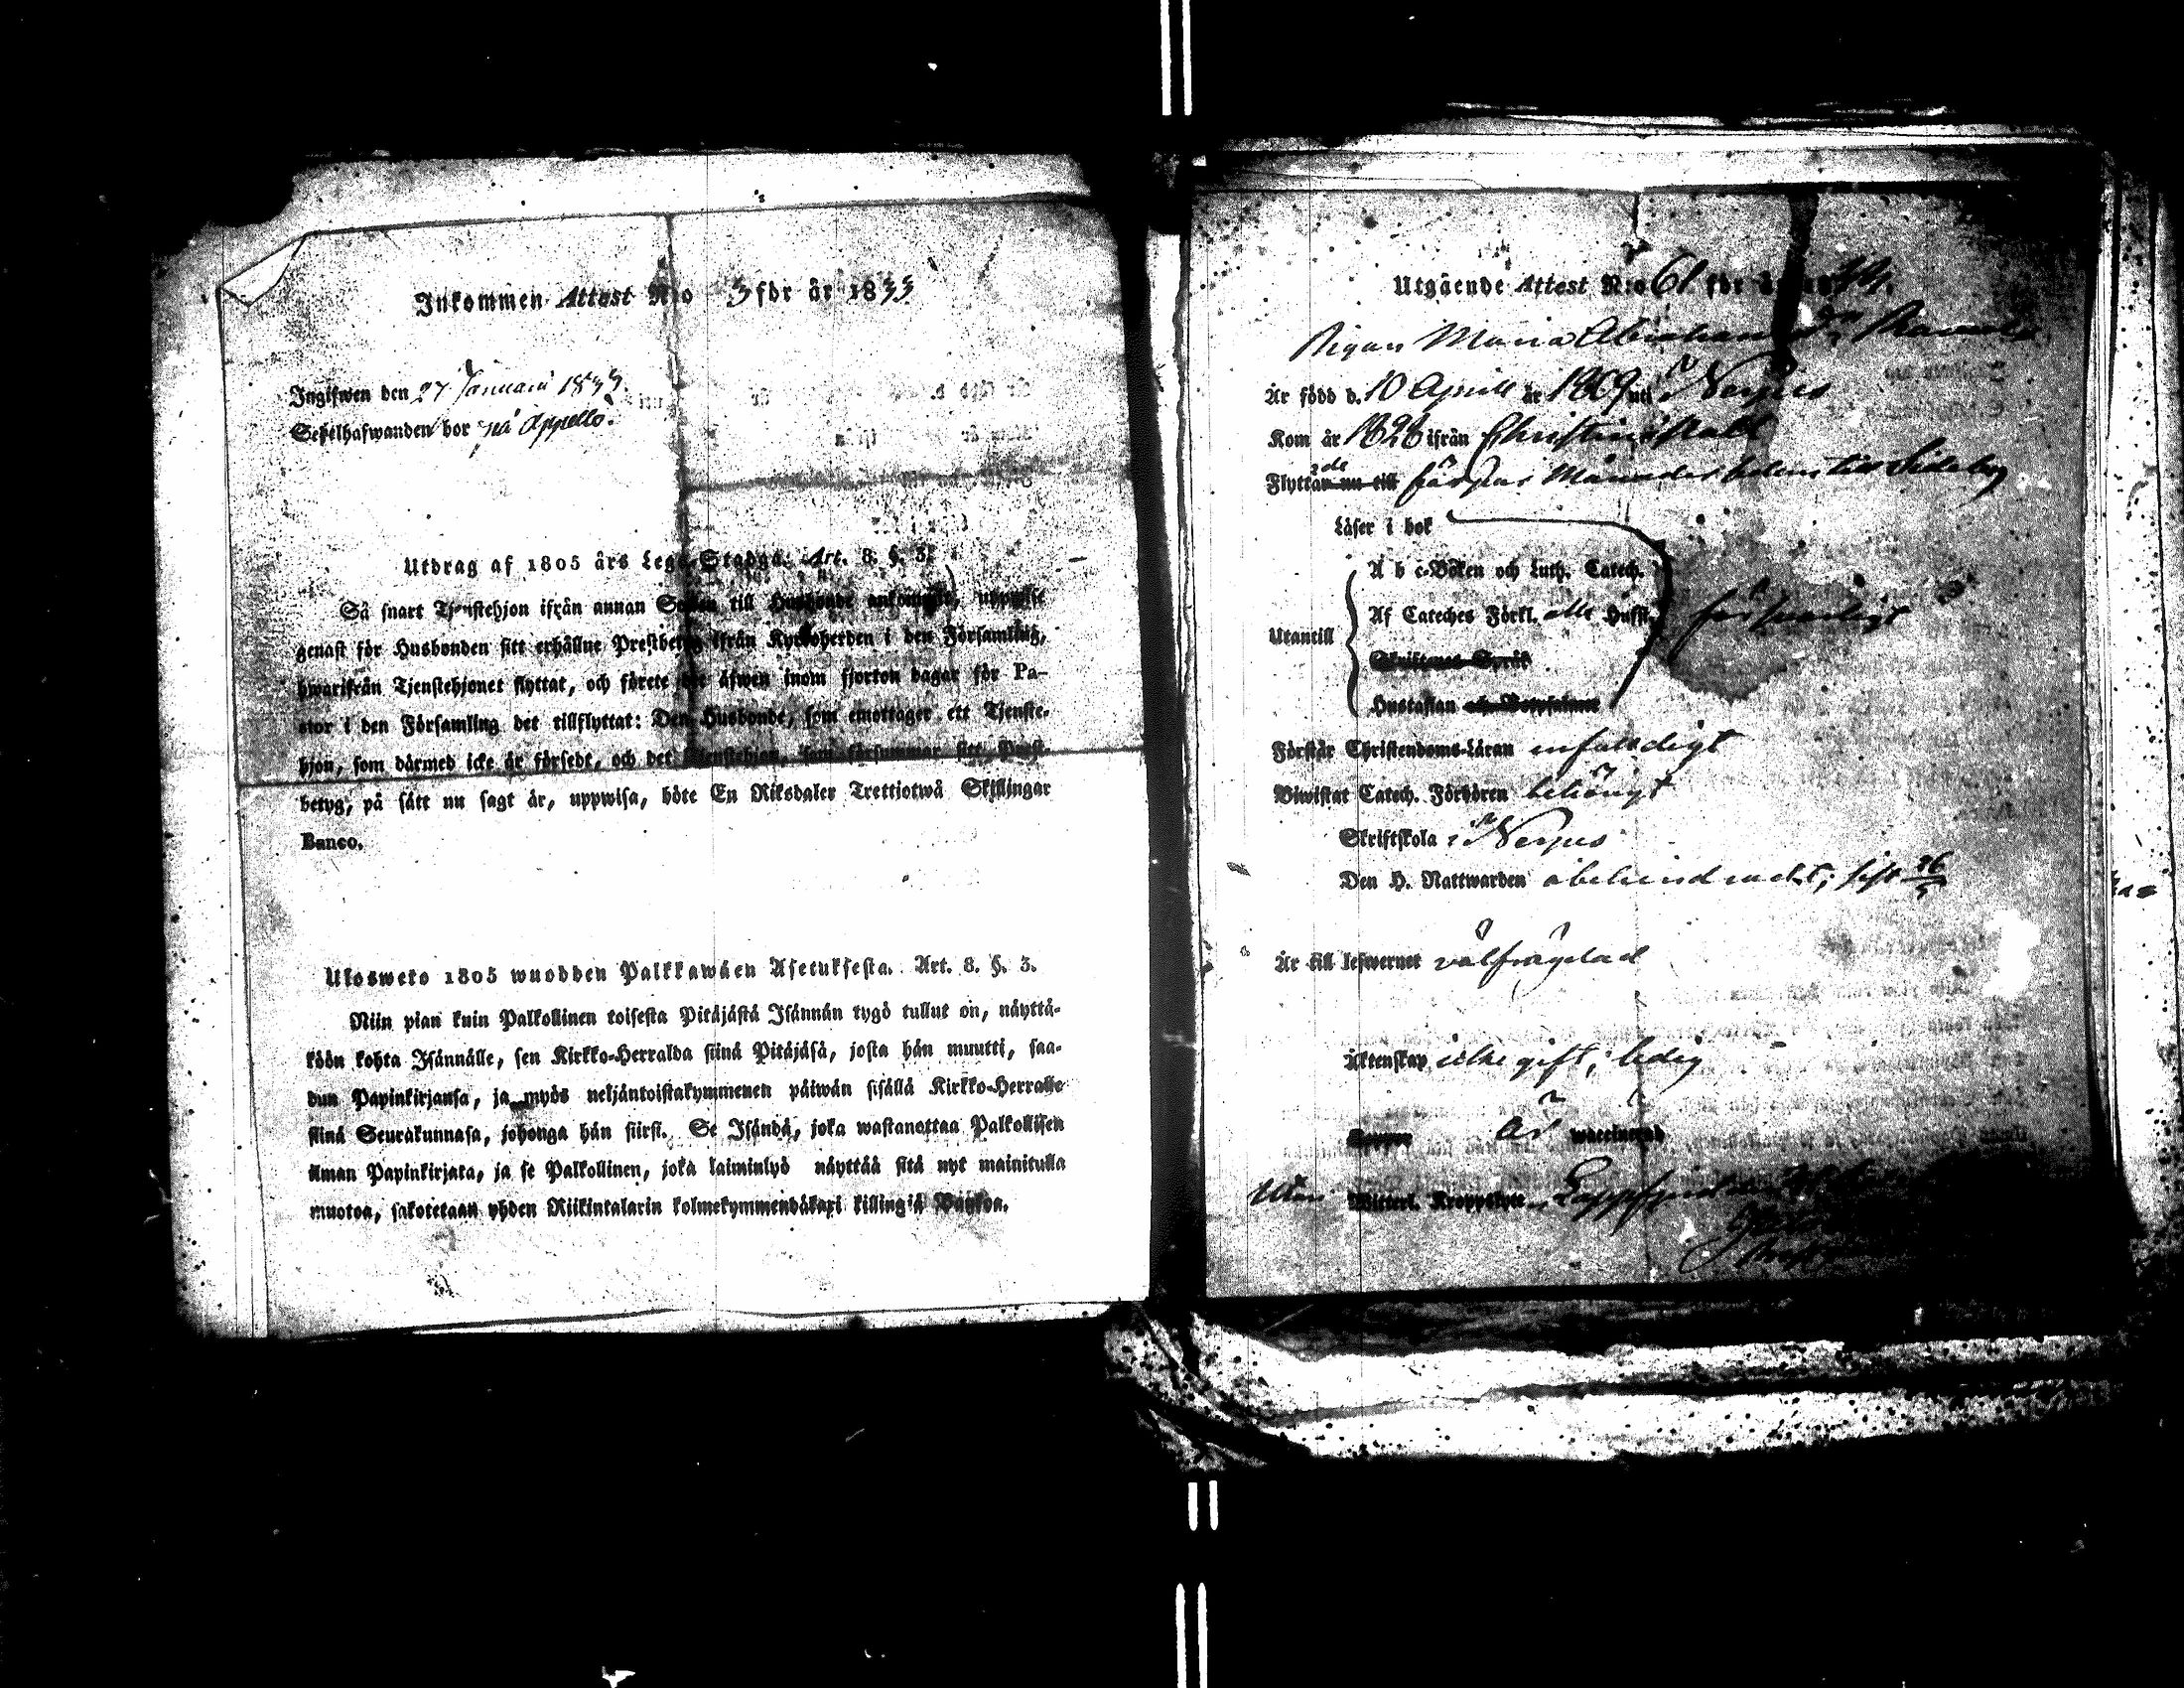 Inkommen Attest N:o 3 för år 1833
Ingifwen den 27 Januarii 1833.
Sedelhafwanden bor på Åppello.
Utdrag af 1805 års Lego-Stadga. Art. 8. §. 3.
Så snart Tjenstehjon ifrån annan Socken till Husbonde ankommit, uppwise
genast för Husbonden sitt erhållne Prestbetyg ifrån Kyrkoherden i den Församling,
hwarifrån Tjenstehjonet flyttat, och förete det äfwen inom fjorton dagar för Pa-
stor i den Församling det tillflyttat: Den Husbonde, som emottager ett Tjenste-
hjon, som därmed icke är försedt, och det Tjenstehjon, som försummar sitt Prest-
betyg, på sätt nu sagt är, uppwisa, böte En Riksdaler Trettiotwå Skillingar
Banco.
Ulosweto 1805 wuodden Palkkawäen Asetuksesta. Art. 8. §. 3.
Niin pian kuin Palkollinen toisesta Pitäjästä Isännän tygö tullut on, näyttä-
köön kohta Isännälle, sen Kirkko-Herralda siinä Pitäjäsä, josta hän muutti, saa-
dun Papinkirjansa, ja myös neljäntoistakymmenen päiwän sisällä Kirkko-Herralle
siinä Seurakunnasa, johonga hän siirsi. Se Isändä, joka wastanottaa Palkollisen
ilman Papinkirjata, ja se Palkollinen, joka laiminlyö näyttää sitä nyt mainitulla
muotoa, sakotetaan yhden Riikintalarin kolmekymmendäkaxi killingiä Bankoa.
Utgående Attest N:o 61 för år
Pigan Maria Abrahamsdr
Är född d. 10 April år 1809 uti Nerpes
Kom år 1828 ifrån Christinæstad
Flyttade för par Månader sedan till Sideby
Läser i bok
A b c-Boken och Luth. Catech.
Utantill Af Cateches Förkl. alla Hufst. försvarligt
Skriftenes Språk
Hustaflan och Botpsalmer
Förstår Christendoms-Läran enfaldigt
Biwistat Catech. Förhören behörigt
Skriftskola i Nerpes
Den H. Nattwarden obehindradt; sist 26/
Är till lefwernet välfrägdad
Äktenskap icke gift; ledig
är waccinerad
Utan Witterl. Kroppslyte. Lappfjerd